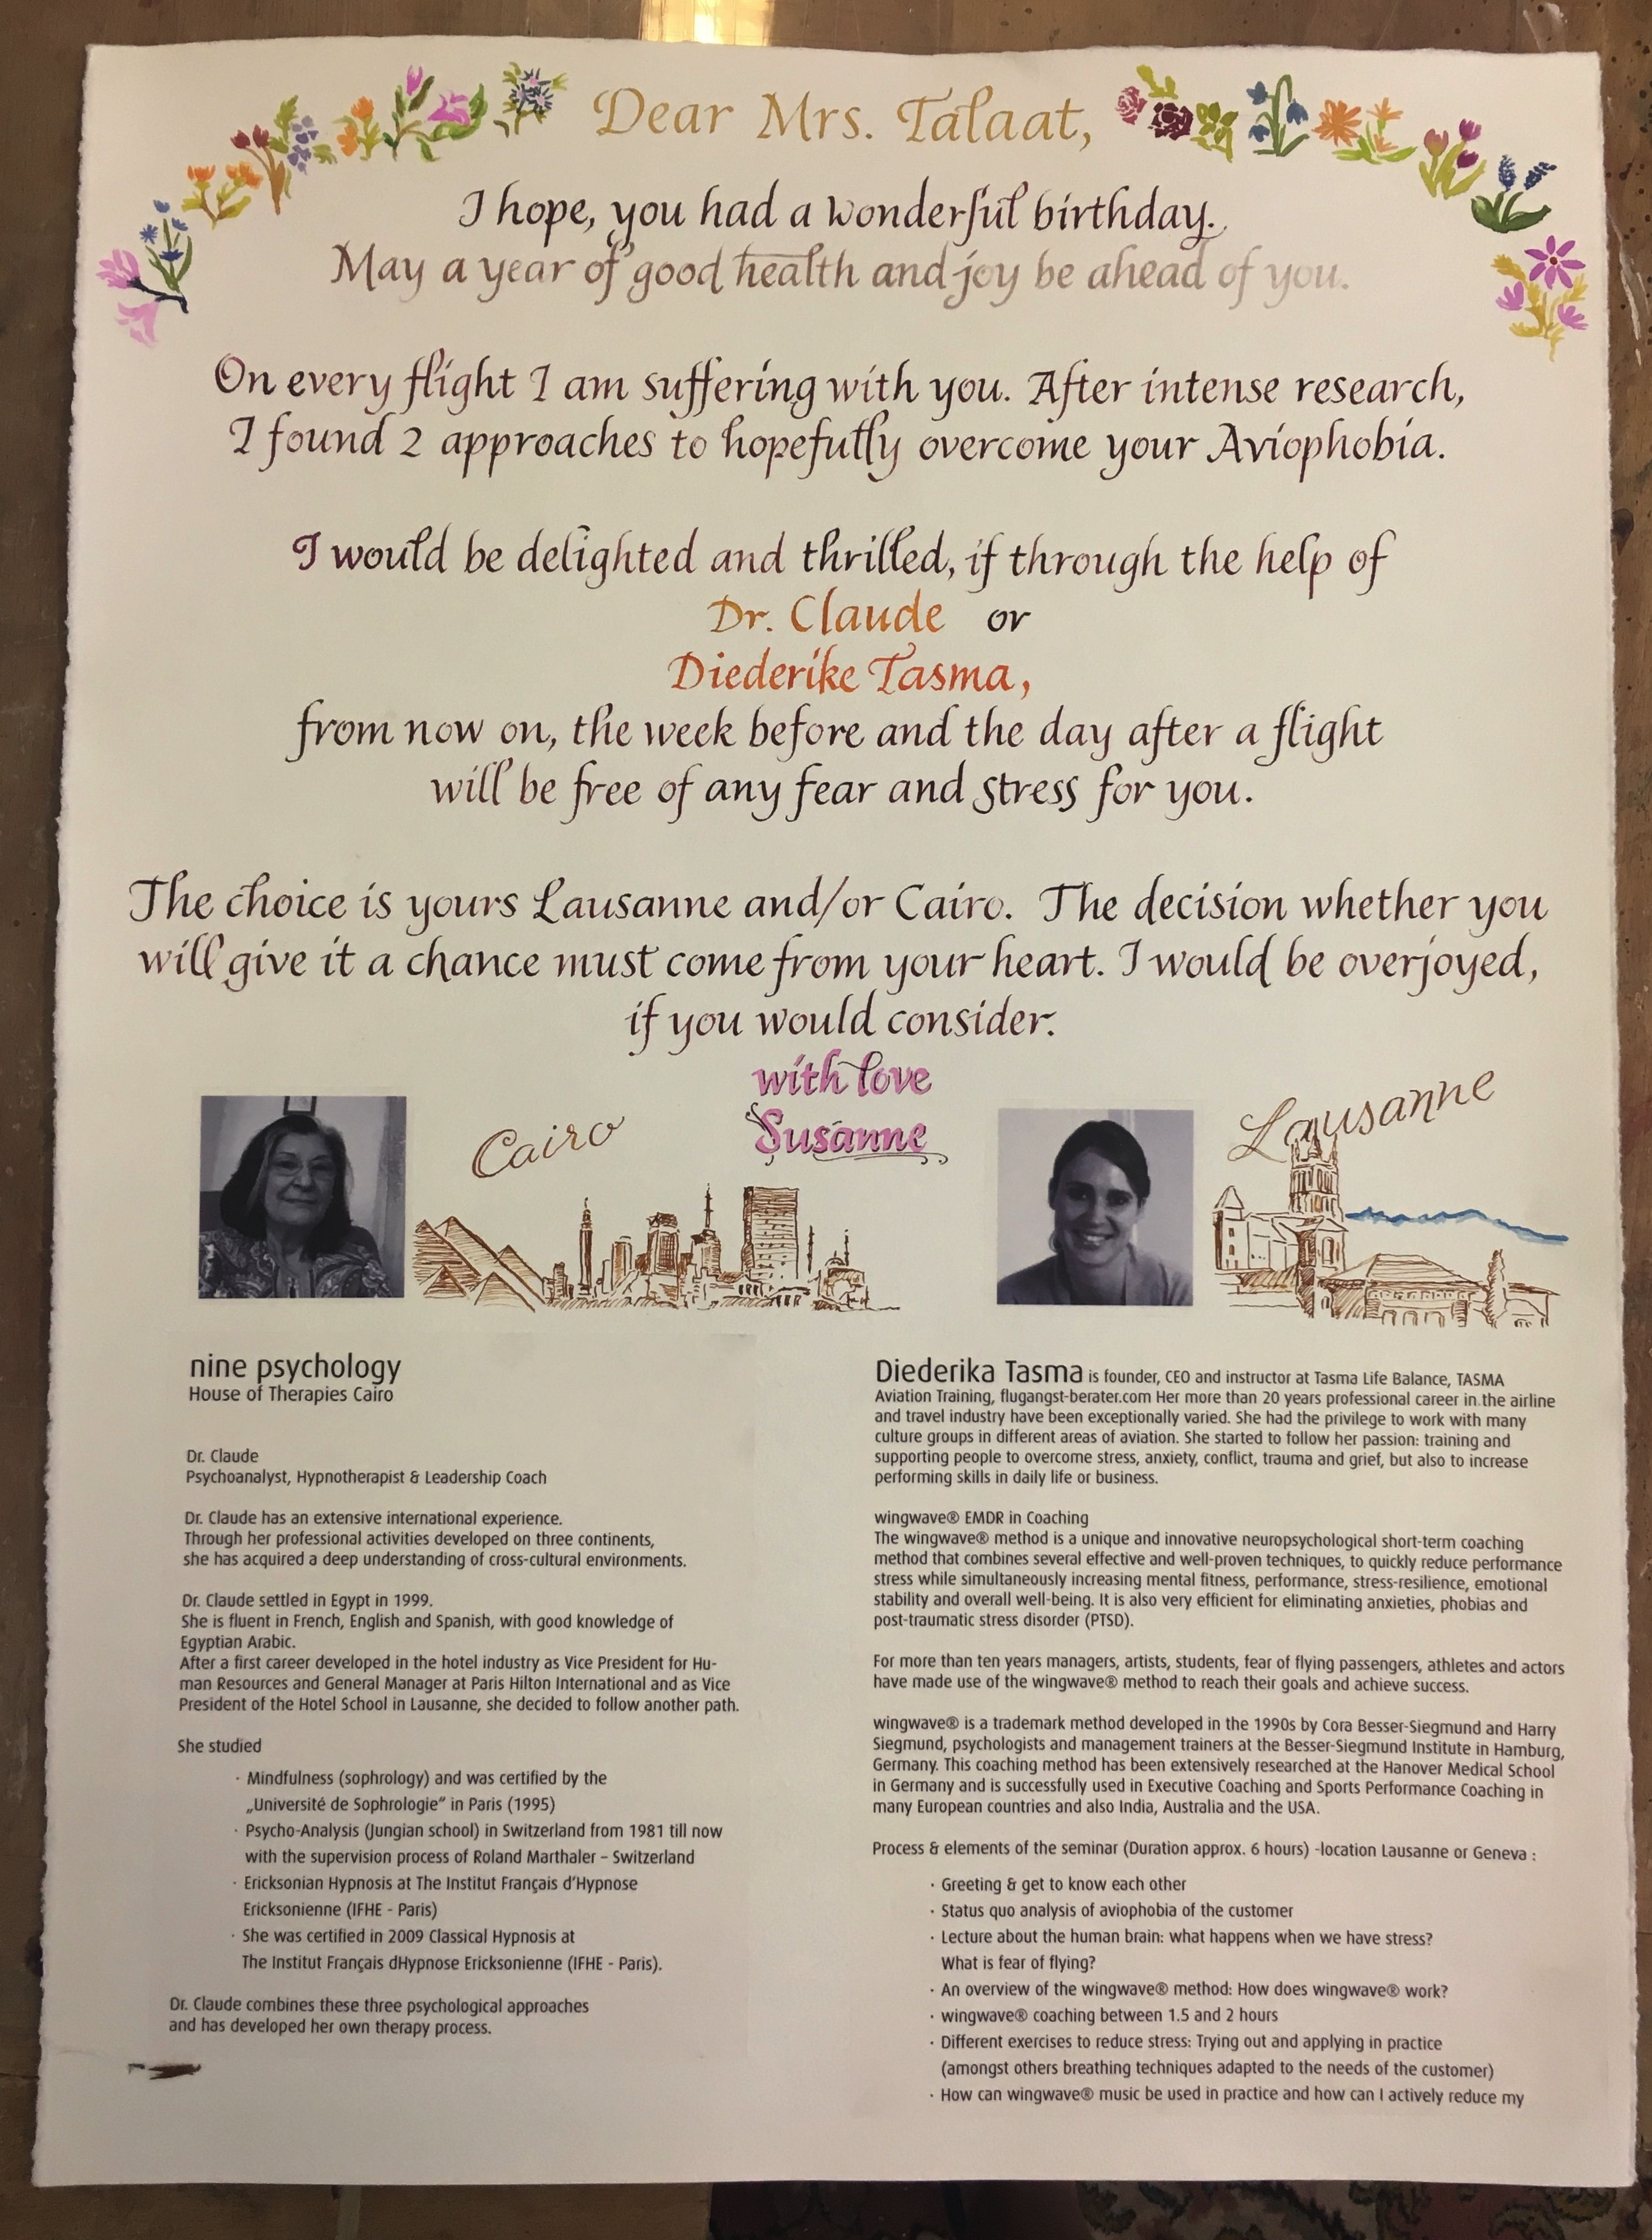 Dear Mrs. Talaat,
I hope, you had a wonderful birthday.
May a year of good health and joy be ahead of you.
On every flight I am suffering with you. After intense research,
I found 2 approaches to hopefully overcome your Aviophobia.
I would be delighted and thrilled, if through the help of
Dr. Claude or
Diederike Tasma,
from now on, the week before and the day after a flight
will be free of any fear and stress for you.
The choice is yours Lausanne and/or Cairo. The decision whether you
will give it a chance must come from your heart. I would be overjoyed,
if you would consider.
with love
Susanne
Cairo
Lausanne
nine psychology
House of Therapies Cairo
Dr. Claude
Psychoanalyst, Hypnotherapist & Leadership Coach
Dr. Claude has an extensive international experience.
Through her professional activities developed on three continents,
she has acquired a deep understanding of cross-cultural environments.
Dr. Claude settled in Egypt in 1999.
She is fluent in French, English and Spanish, with good knowledge of
Egyptian Arabic.
After a first career developed in the hotel industry as Vice President for Hu-
man Resources and General Manager at Paris Hilton International and as Vice
President of the Hotel School in Lausanne, she decided to follow another path.
She studied
· Mindfulness (sophrology) and was certified by the
„Université de Sophrologie" in Paris (1995)
· Psycho-Analysis (Jungian school) in Switzerland from 1981 till now
with the supervision process of Roland Marthaler – Switzerland
· Ericksonian Hypnosis at The Institut Français d'Hypnose
Ericksonienne (IFHE - Paris)
· She was certified in 2009 Classical Hypnosis at
The Institut Français dHypnose Ericksonienne (IFHE - Paris).
Dr. Claude combines these three psychological approaches
and has developed her own therapy process.
Diederika Tasma is founder, CEO and instructor at Tasma Life Balance, TASMA
Aviation Training, flugangst-berater.com Her more than 20 years professional career in the airline
and travel industry have been exceptionally varied. She had the privilege to work with many
culture groups in different areas of aviation. She started to follow her passion: training and
supporting people to overcome stress, anxiety, conflict, trauma and grief, but also to increase
performing skills in daily life or business.
wingwave® EMDR in Coaching
The wingwave® method is a unique and innovative neuropsychological short-term coaching
method that combines several effective and well-proven techniques, to quickly reduce performance
stress while simultaneously increasing mental fitness, performance, stress-resilience, emotional
stability and overall well-being. It is also very efficient for eliminating anxieties, phobias and
post-traumatic stress disorder (PTSD).
For more than ten years managers, artists, students, fear of flying passengers, athletes and actors
have made use of the wingwave® method to reach their goals and achieve success.
wingwave® is a trademark method developed in the 1990s by Cora Besser-Siegmund and Harry
Siegmund, psychologists and management trainers at the Besser-Siegmund Institute in Hamburg,
Germany. This coaching method has been extensively researched at the Hanover Medical School
in Germany and is successfully used in Executive Coaching and Sports Performance Coaching in
many European countries and also India, Australia and the USA.
Process & elements of the seminar (Duration approx. 6 hours) -location Lausanne or Geneva :
· Greeting & get to know each other
· Status quo analysis of aviophobia of the customer
· Lecture about the human brain: what happens when we have stress?
What is fear of flying?
· An overview of the wingwave® method: How does wingwave® work?
· wingwave® coaching between 1.5 and 2 hours
· Different exercises to reduce stress: Trying out and applying in practice
(amongst others breathing techniques adapted to the needs of the customer)
· How can wingwave® music be used in practice and how can I actively reduce my